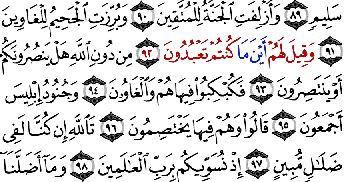 سَلِيمٍ ﴿٨٩﴾ وَأُزْلِفَتِ الْجَنَّةُ لِلْمُتَّقِينَ ﴿٩٠﴾ وَبُرِّزَتِ الْجَحِيمُ لِلْغَاوِينَ
﴿٩١﴾ وَقِيلَ لَهُمْ أَيْنَ مَا كُنتُمْ تَعْبُدُونَ ﴿٩٢﴾ مِن دُونِ اللَّهِ هَلْ يَنصُرُونَكُمْ
أَوْ يَنتَصِرُونَ ﴿٩٣﴾ فَكُبْكِبُوا فِيهَا هُمْ وَالْغَاوُونَ ﴿٩٤﴾ وَجُنُودُ إِبْلِيسَ
أَجْمَعُونَ ﴿٩٥﴾ قَالُوا وَهُمْ فِيهَا يَخْتَصِمُونَ ﴿٩٦﴾ تَاللَّهِ إِن كُنَّا لَفِي
ضَلَالٍ مُّبِينٍ ﴿٩٧﴾ إِذْ نُسَوِّيكُم بِرَبِّ الْعَالَمِينَ ﴿٩٨﴾ وَمَا أَضَلَّنَا